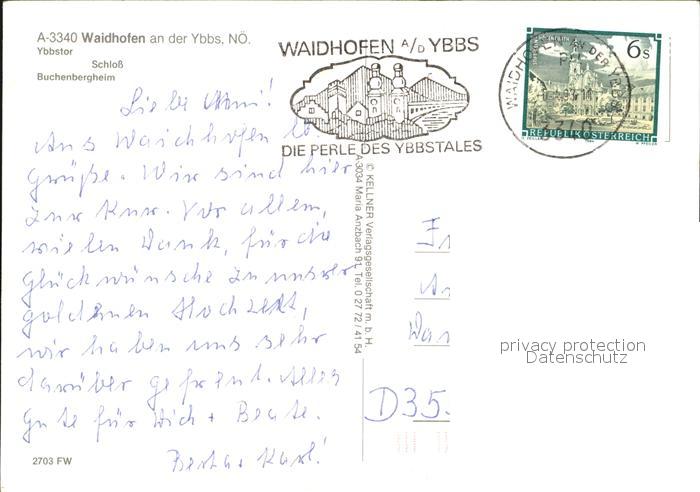 A-3340 Waidhofen an der Ybbs, NÖ.
Ybbstor
Schloß
Buchenbergheim
WAIDHOFEN A/D YBBS
DIE PERLE DES YBBSTALES
WAIDHOFEN AN DER YBBS
6s
REPUBLIK ÖSTERREICH
Liebe Omi!
Aus Waidhofen lb.
Grüße. Wir sind hier
zur Kur. Vor allem,
vielen Dank, für die
Glückwünsche zu unserer
goldenen Hochzeit,
wir haben uns sehr
darüber gefreut. Alles
Gute für Dich + Beate.
Berta + Karl!
© KELLNER Verlagsgesellschaft m. b. H.
A-3034 Maria Anzbach 91, Tel. 0 27 72 / 41 54
D35.
privacy protection
Datenschutz
2703 FW